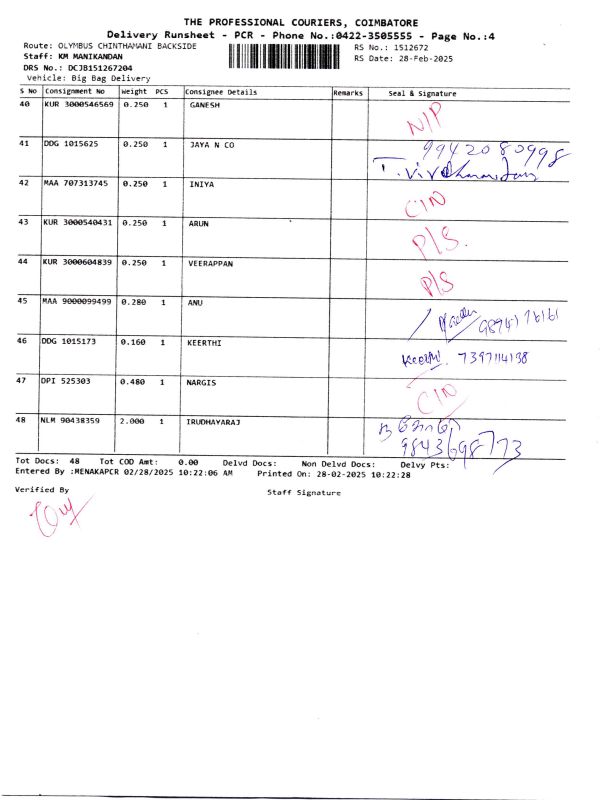 THE PROFESSIONAL COURIERS, COIMBATORE
Delivery Runsheet - PCR - Phone No.:0422-3505555 - Page No.:4
Route: OLYMBUS CHINTHAMANI BACKSIDE RS No.: 1512672
Staff: KM MANIKANDAN RS Date: 28-Feb-2025
DRS No.: DCJB151267204
Vehicle: Big Bag Delivery
S No Consignment No Weight PCS Consignee Details Remarks Seal & Signature
40 KUR 3000546569 0.250 1 GANESH N/P
41 DDG 1015625 0.250 1 JAYA N CO 9942080998
42 MAA 707313745 0.250 1 INIYA C/N
43 KUR 3000540431 0.250 1 ARUN P/S.
44 KUR 3000604839 0.250 1 VEERAPPAN P/S
45 MAA 9000099499 0.280 1 ANU
46 DDG 1015173 0.160 1 KEERTHI Keerthi. 7397114138
47 DPI 525303 0.480 1 NARGIS C/N
48 NLM 90438359 2.000 1 IRUDHAYARAJ 9843698773
Tot Docs: 48 Tot COD Amt: 0.00 Delvd Docs: Non Delvd Docs: Delvy Pts:
Entered By :MENAKAPCR 02/28/2025 10:22:06 AM Printed On: 28-02-2025 10:22:28
Verified By Staff Signature